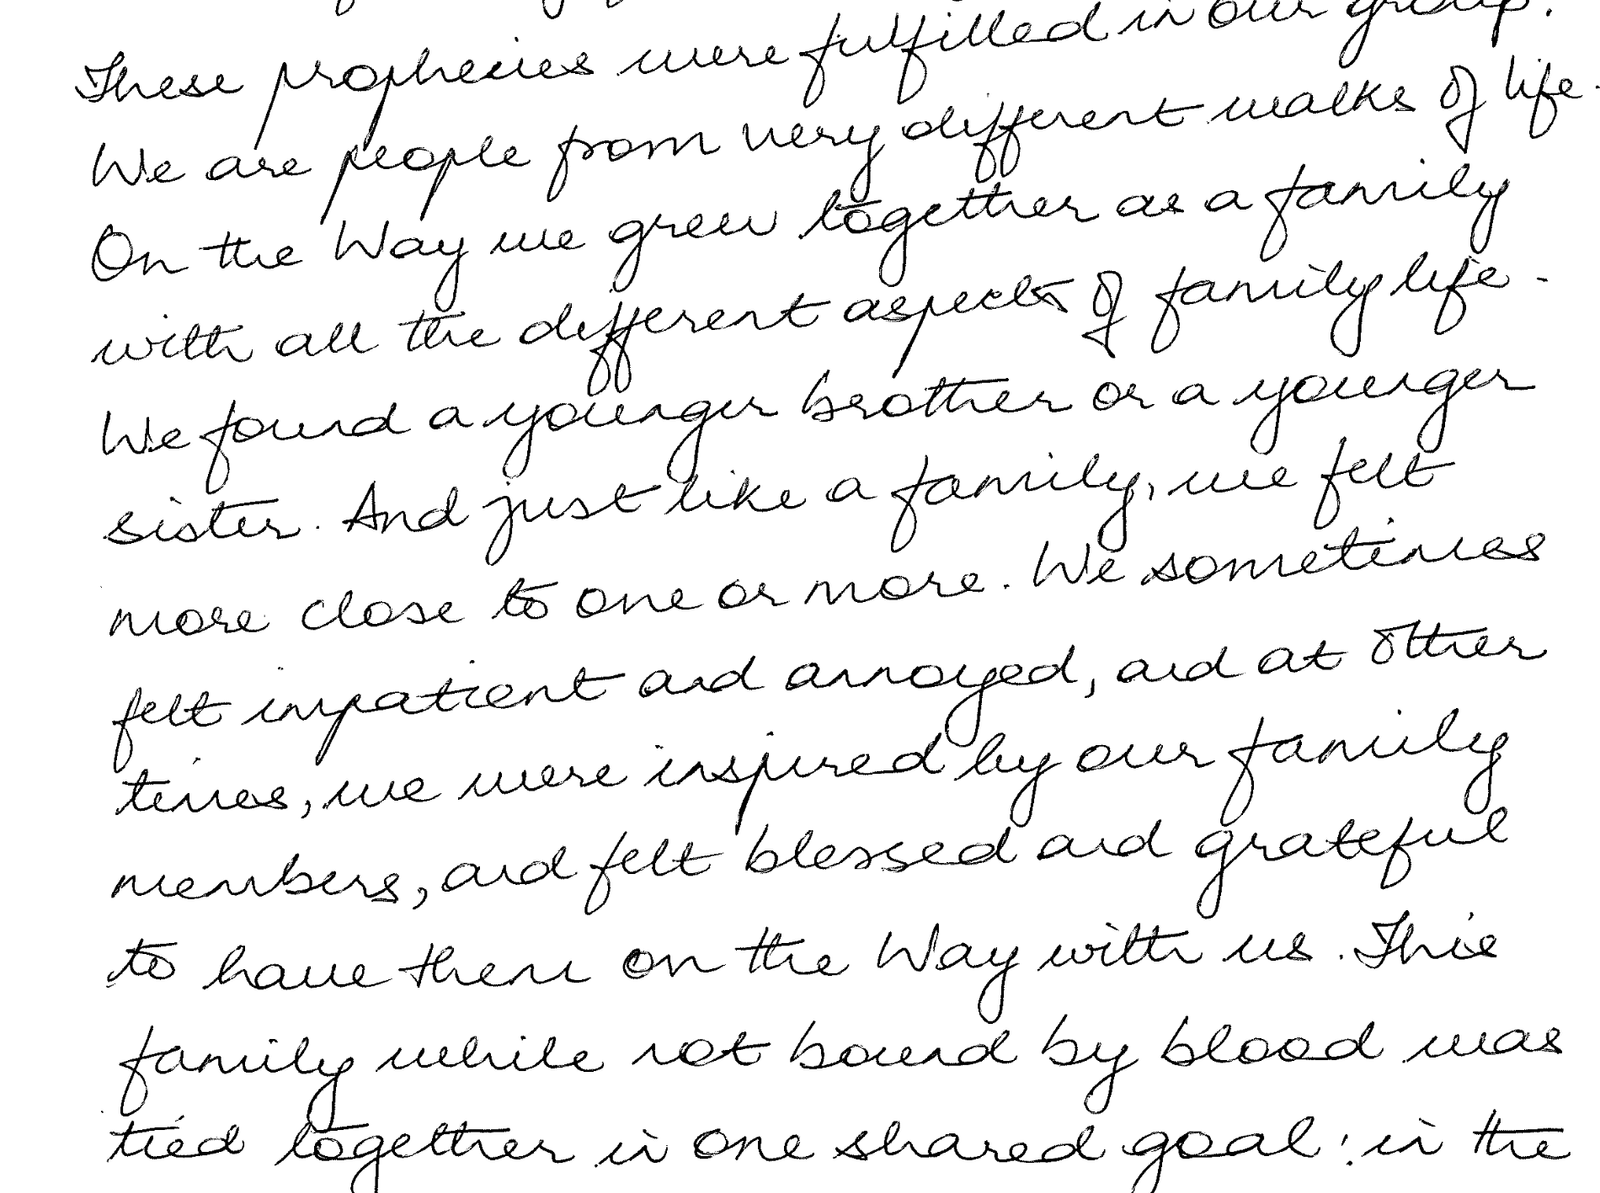 These prophecies were fulfilled in our group.
We are people from very different walks of life.
On the Way we grew together as a family
with all the different aspects of family life.
We found a younger brother or a younger
sister. And just like a family, we felt
more close to one or more. We sometimes
felt impatient and annoyed, and at other
times, we were inspired by our family
members, and felt blessed and grateful
to have them on the Way with us. This
family while not bound by blood was
tied together in one shared goal: in the